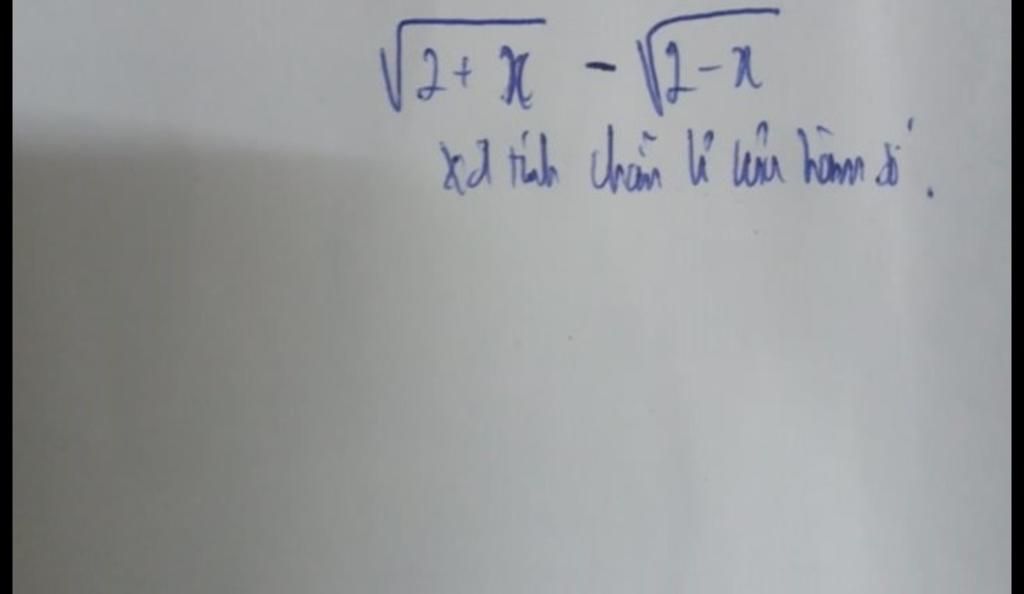 √2+x - √2-x
xđ tính chẵn lẻ của hàm số.